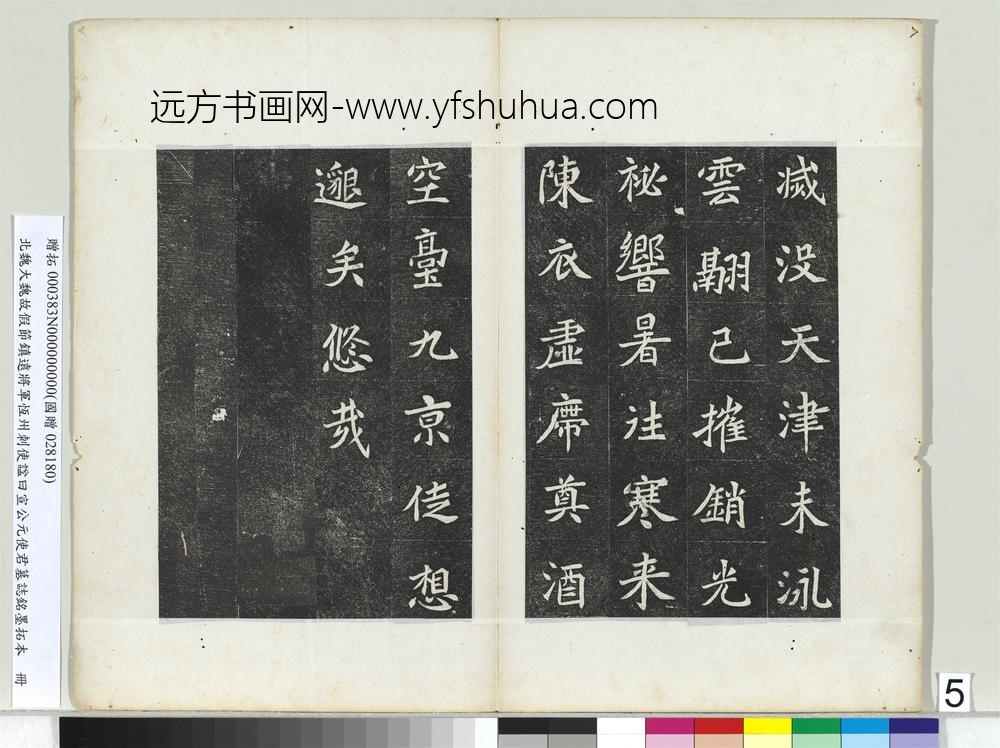 远方书画网-www.yfshuhua.com
滅没天津未泳
雲翮已摧銷光
祕響暑往寒来
陳衣虚席奠酒
空臺九京徒想
邈矣悠哉
贈拓 000383N000000000(國贈 028180)
北魏大魏故假節鎮遠將軍恆州刺使諡曰宣公元使君墓誌銘墨拓本 冊
5